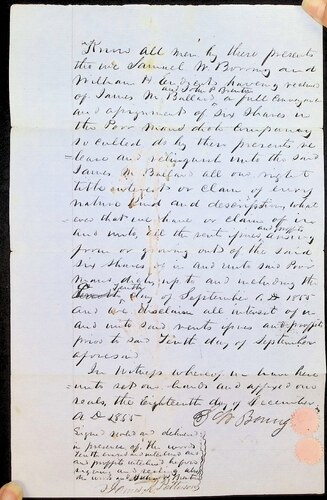 Know all men by these presents
that we Samuel W. Boring and
William H. having received
and John P.
of James M. Ballard a full Conveyance
and assignment of Six Shares in
the Poor Mans ditch Company
so called do by these presents re
lease and relinquish unto the said
James M. Ballard all our right
title interest or claim of every
nature kind and description what
ever that we have or claim of in
and unto, all the rents issues and profits arising
from or growing out of the said
Six Shares of in and unto said Poor
Mans ditch, up to and including the
Tenth day of September A.D. 1855
and we disclaim all interest of in
and unto said rents issues and profits
prior to said Tenth day of September
aforesaid
In Witness whereof we have here
unto set our hands and affixed our
seals, the Eighteenth day of December
A D 1855
S W Boring
Signed sealed and delivered
in presence of The words
Tenth erased and interlined and
and profits interlined before
signing and sealing also
the words and